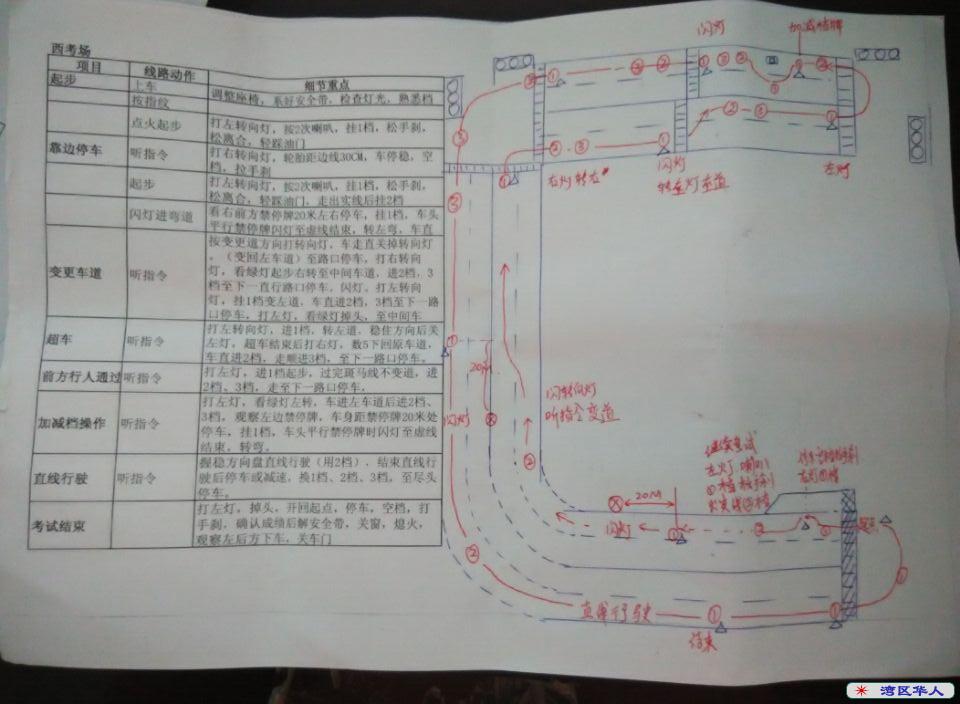 西考场
项目 线路动作 细节重点
起步 上车 调整座椅，系好安全带，检查灯光，熟悉档
按指纹
点火起步 打左转向灯，按2次喇叭，挂1档，松手刹，
松离合，轻踩油门
靠边停车 听指令 打右转向灯，轮胎距边线30CM，车停稳，空
档，拉手刹
起步 打左转向灯，按2次喇叭，挂1档，松手刹，
松离合，轻踩油门，走出实线后挂2档
闪灯进弯道 看右前方禁停牌20米左右停车，挂1档，车头
平行禁停牌闪灯至虚线结束，转左弯，车直
变更车道 听指令 按变更道方向打转向灯，车走直关掉转向灯
，（变回左车道）至路口停车，打右转向
灯，看绿灯起步右转至中间车道，进2档，3
档至下一直行路口停车，闪灯。打左转向
灯，挂1档变左道，车直进2档，3档至下一路
口停车，打左灯，看绿灯掉头，至中间车
超车 听指令 打左转向灯，进1档，转左道，稳住方向后关
左灯，超车结束后打右灯，数5下回原车道，
车直进2档，走顺进3档，至下一路口停车。
前方行人通过 听指令 打左灯，进1档起步，过完斑马线不变道，进
2档、3档，走至下一路口停车。
加减档操作 听指令 打左灯，看绿灯左转，车进左车道后进2档、
3档，观察左边禁停牌，车身距禁停牌20米处
停车，挂1档，车头平行禁停牌时闪灯至虚线
结束，转弯。
直线行驶 听指令 握稳方向盘直线行驶（用2档），结束直线行
驶后停车或减速，换1档、2档、3档，至尽头
停车。
考试结束 打左灯，掉头，开回起点，停车，空档，打
手刹，确认成绩后解安全带，关窗，熄火，
观察左后方下车，关车门
闪灯
加减档牌
① ② ③
右灯转右
闪灯
转左灯左道
左灯
20M
闪灯
闪转向灯
听指令变道
继续考试
左灯 喇叭
20M
闪灯
直线行驶
结束
湾区华人